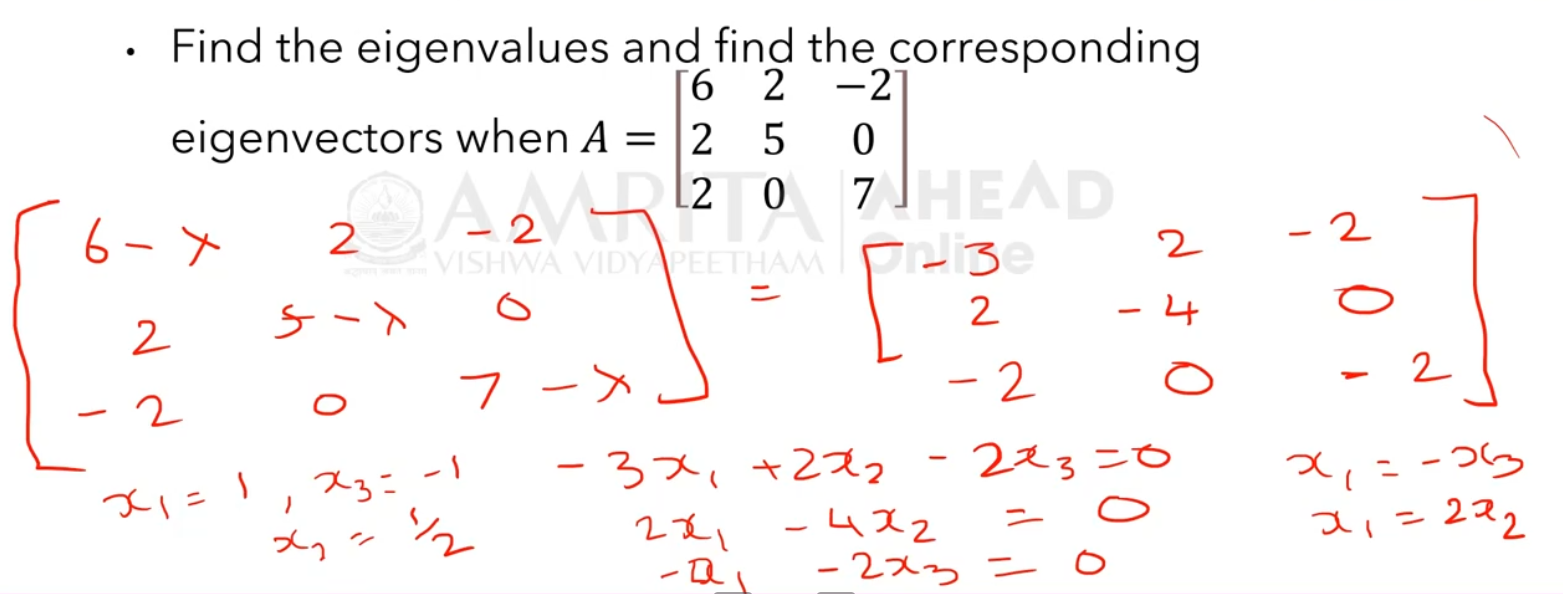 • Find the eigenvalues and find the corresponding
eigenvectors when A = [6 2 −2
2 5 0
2 0 7]
AMRITA | AHEAD
VISHWA VIDYAPEETHAM | Online
[6 - λ 2 - 2
2 5 - λ 0
- 2 0 7 - λ]
=
[- 3 2 - 2
2 - 4 0
- 2 0 - 2]
x₁ = 1, x₃ = -1
x₂ = 1/2
- 3x₁ + 2x₂ - 2x₃ = 0
2x₁ - 4x₂ = 0
- 2x₃ = 0
x₁ = - x₃
x₁ = 2x₂